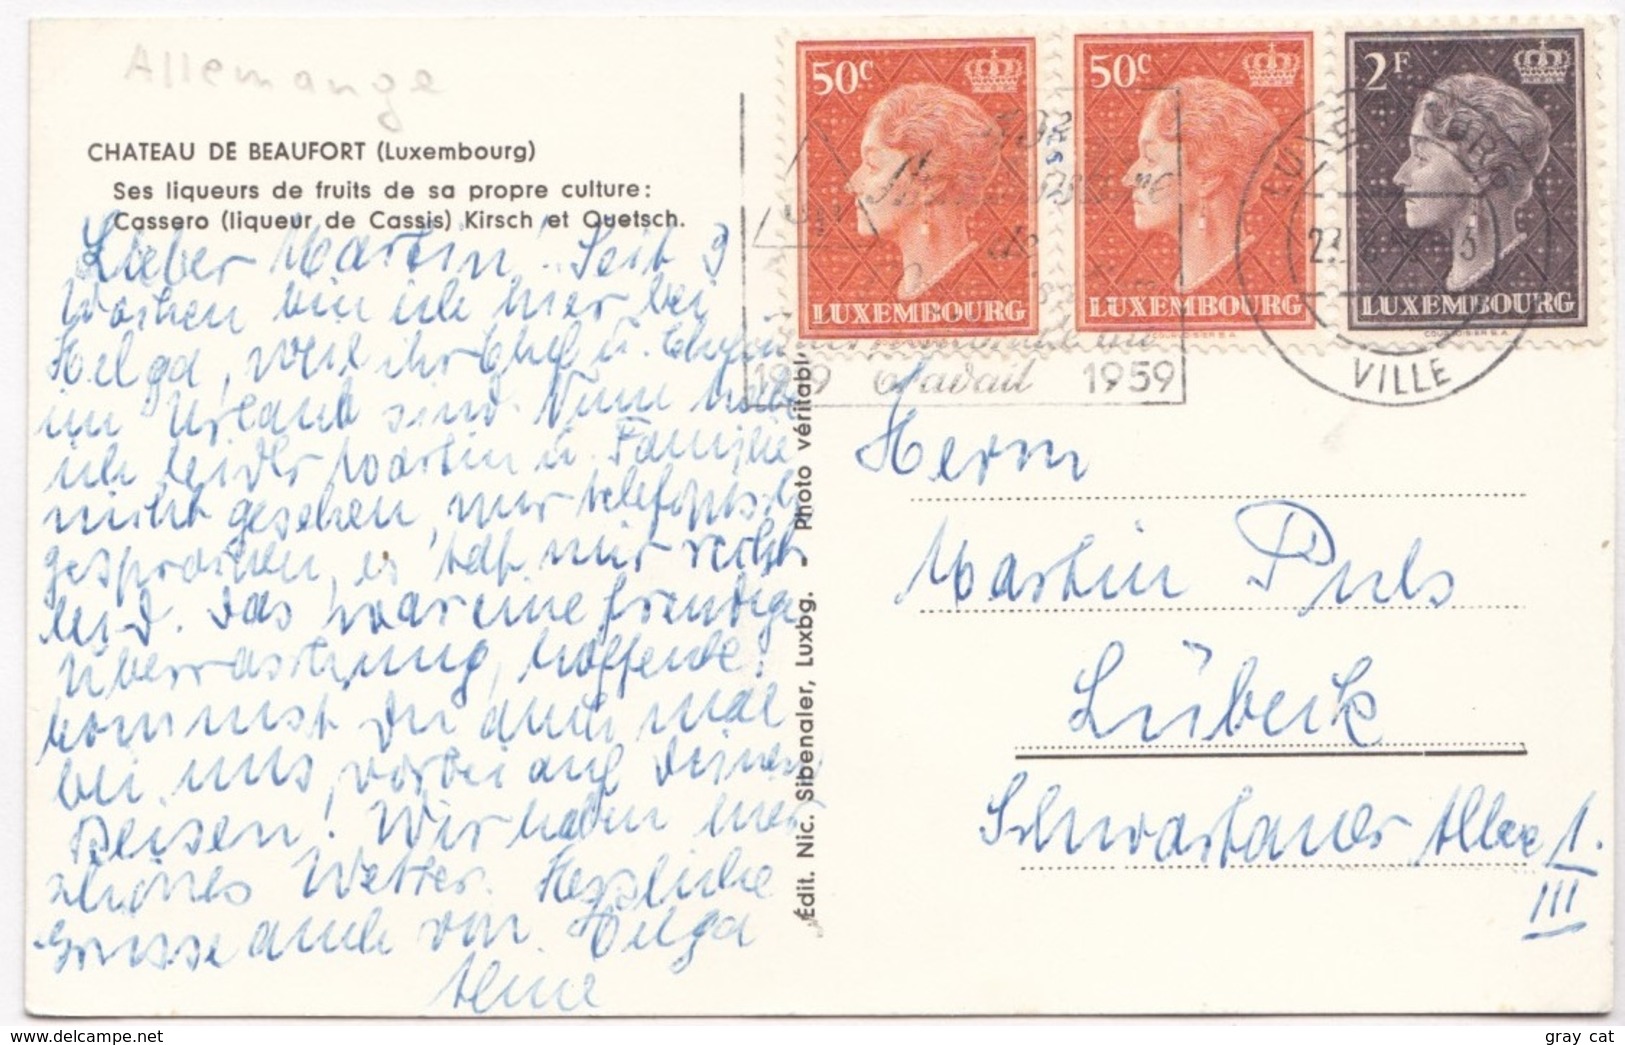 Allemange
CHATEAU DE BEAUFORT (Luxembourg)
Ses liqueurs de fruits de sa propre culture:
Cassero (liqueur de Cassis) Kirsch et Quetsch.
Lieber Martin! Seit 3
Wochen bin ich hier bei
Helga, weil ihr Chef u. Chefin
im Urlaub sind. Nun habe
ich leider Martin u. Familie
nicht gesehen, nur telefonisch
gesprochen, es tat mir recht
leid. Das war eine freudige
Überraschung, hoffentl.
kommst Du auch mal
bei uns vorbei auf Deinen
Reisen! Wir haben hier
schönes Wetter. Herzliche
Grüsse auch von Helga
Édit. Nic. Sibenaler, Luxbg. - Photo véritable
50C
LUXEMBOURG
50C
LUXEMBOURG
2F
LUXEMBOURG
COURVOISIER S.A.
de
travail
1919 1959
LUXEMBOURG
VILLE
Herrn
Martin Puls
Lübeck
Schwartauer Allee 1.
III
www.delcampe.net
gray cat